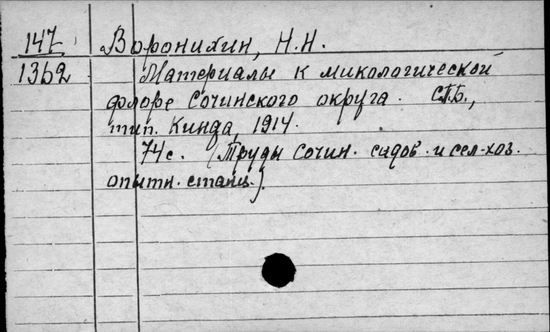 147 Воронихин, Н.Н.
1362 Материалы к микологической
флоре Сочинского округа. СПБ.,
тип. Кинда, 1914.
74 с. (Труды Сочин. садов. и сел-хоз.
опытн. станц.).